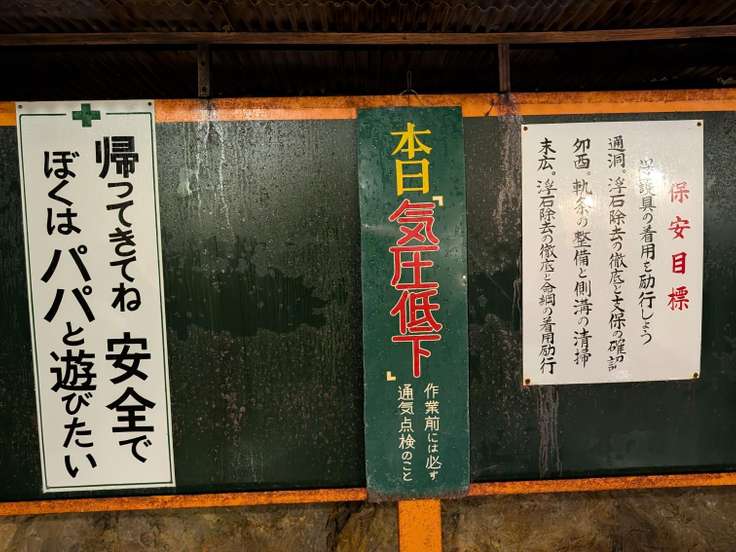 帰ってきてね 安全で
ぼくは パパと遊びたい
本日『気圧低下』
作業前には必ず
通気点検のこと
保安目標
保護具の着用を励行しよう
通洞。浮石除去の徹底と支保の確認
卯酉。軌条の整備と側溝の清掃
末広。浮石除去の徹底と命綱の着用励行